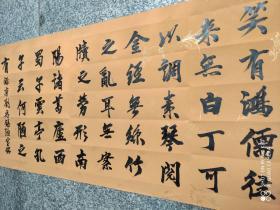 笑有鴻儒往
来無白丁可
以調素琴閱
金經無絲竹
之亂耳無案
牘之勞形南
陽諸葛廬西
蜀子雲亭孔
子云何陋之
有 劉禹錫陋室銘